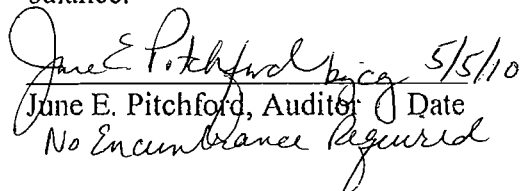 balance.
June E Pitchford by cg 5/5/10
June E. Pitchford, Auditor Date
No Encumbrance Required